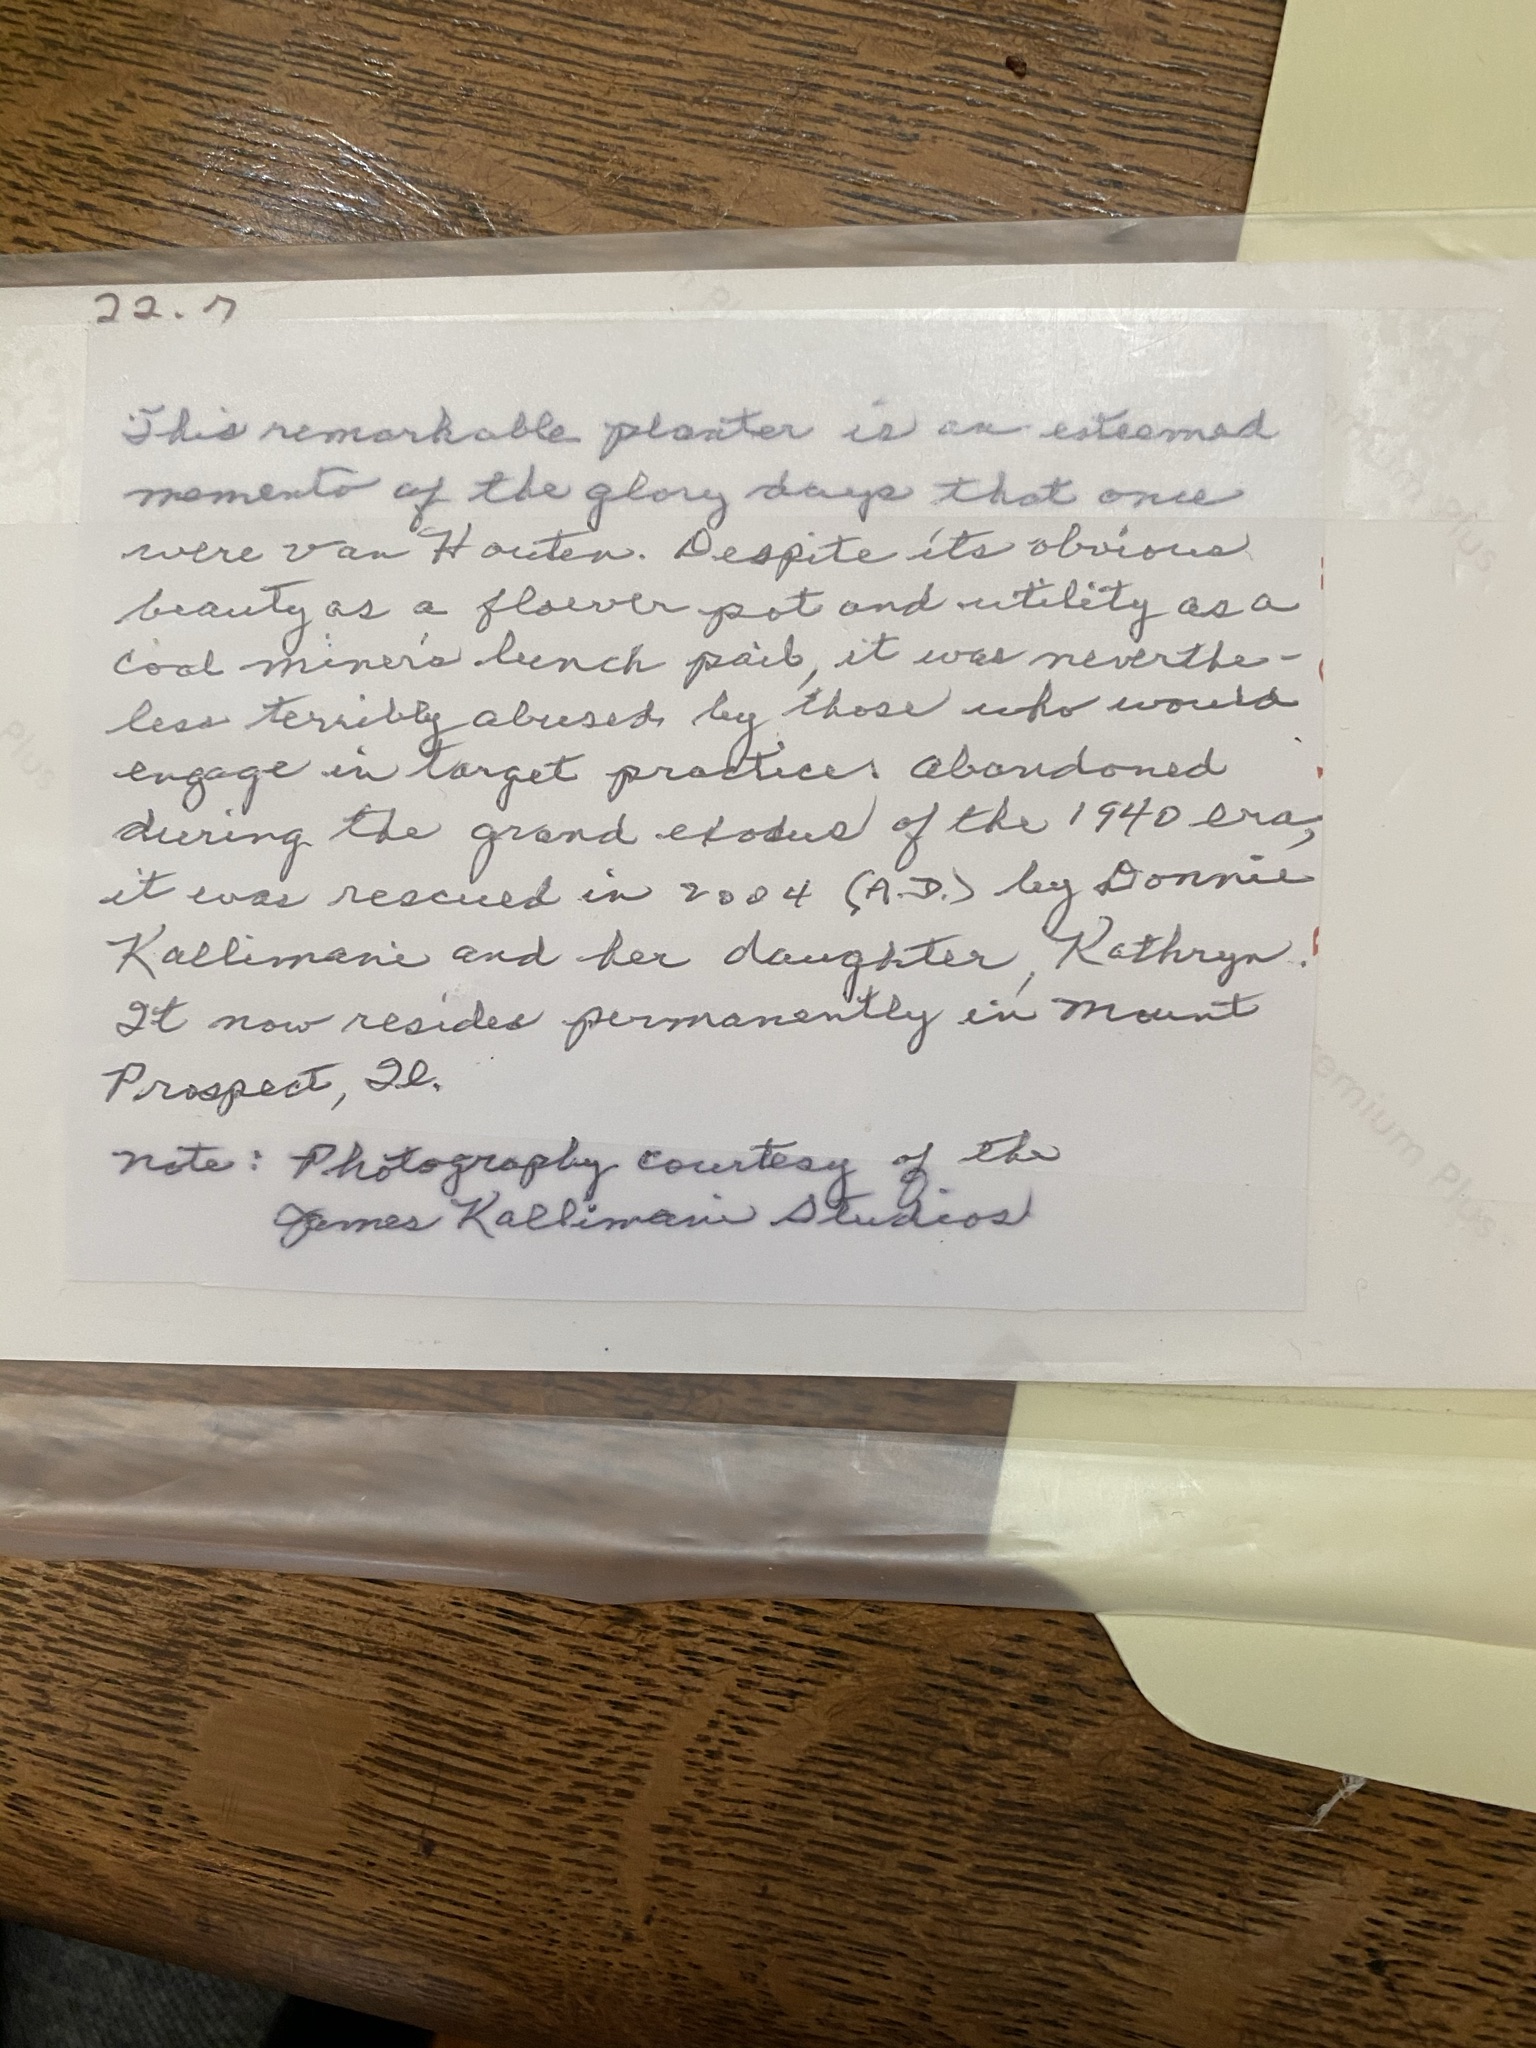 22.7
This remarkable planter is an esteemed
memento of the glory days that once
were Van Houten. Despite its obvious
beauty as a flower pot and utility as a
coal miner's lunch pail, it was neverthe-
less terribly abused by those who would
engage in target practice. Abandoned
during the grand exodus of the 1940 era,
it was rescued in 2004 (A.D.) by Donnie
Kallimani and her daughter, Kathryn.
It now resides permanently in Mount
Prospect, Il.
Note: Photography courtesy of the
James Kallimani Studios
Plus
emium Plus